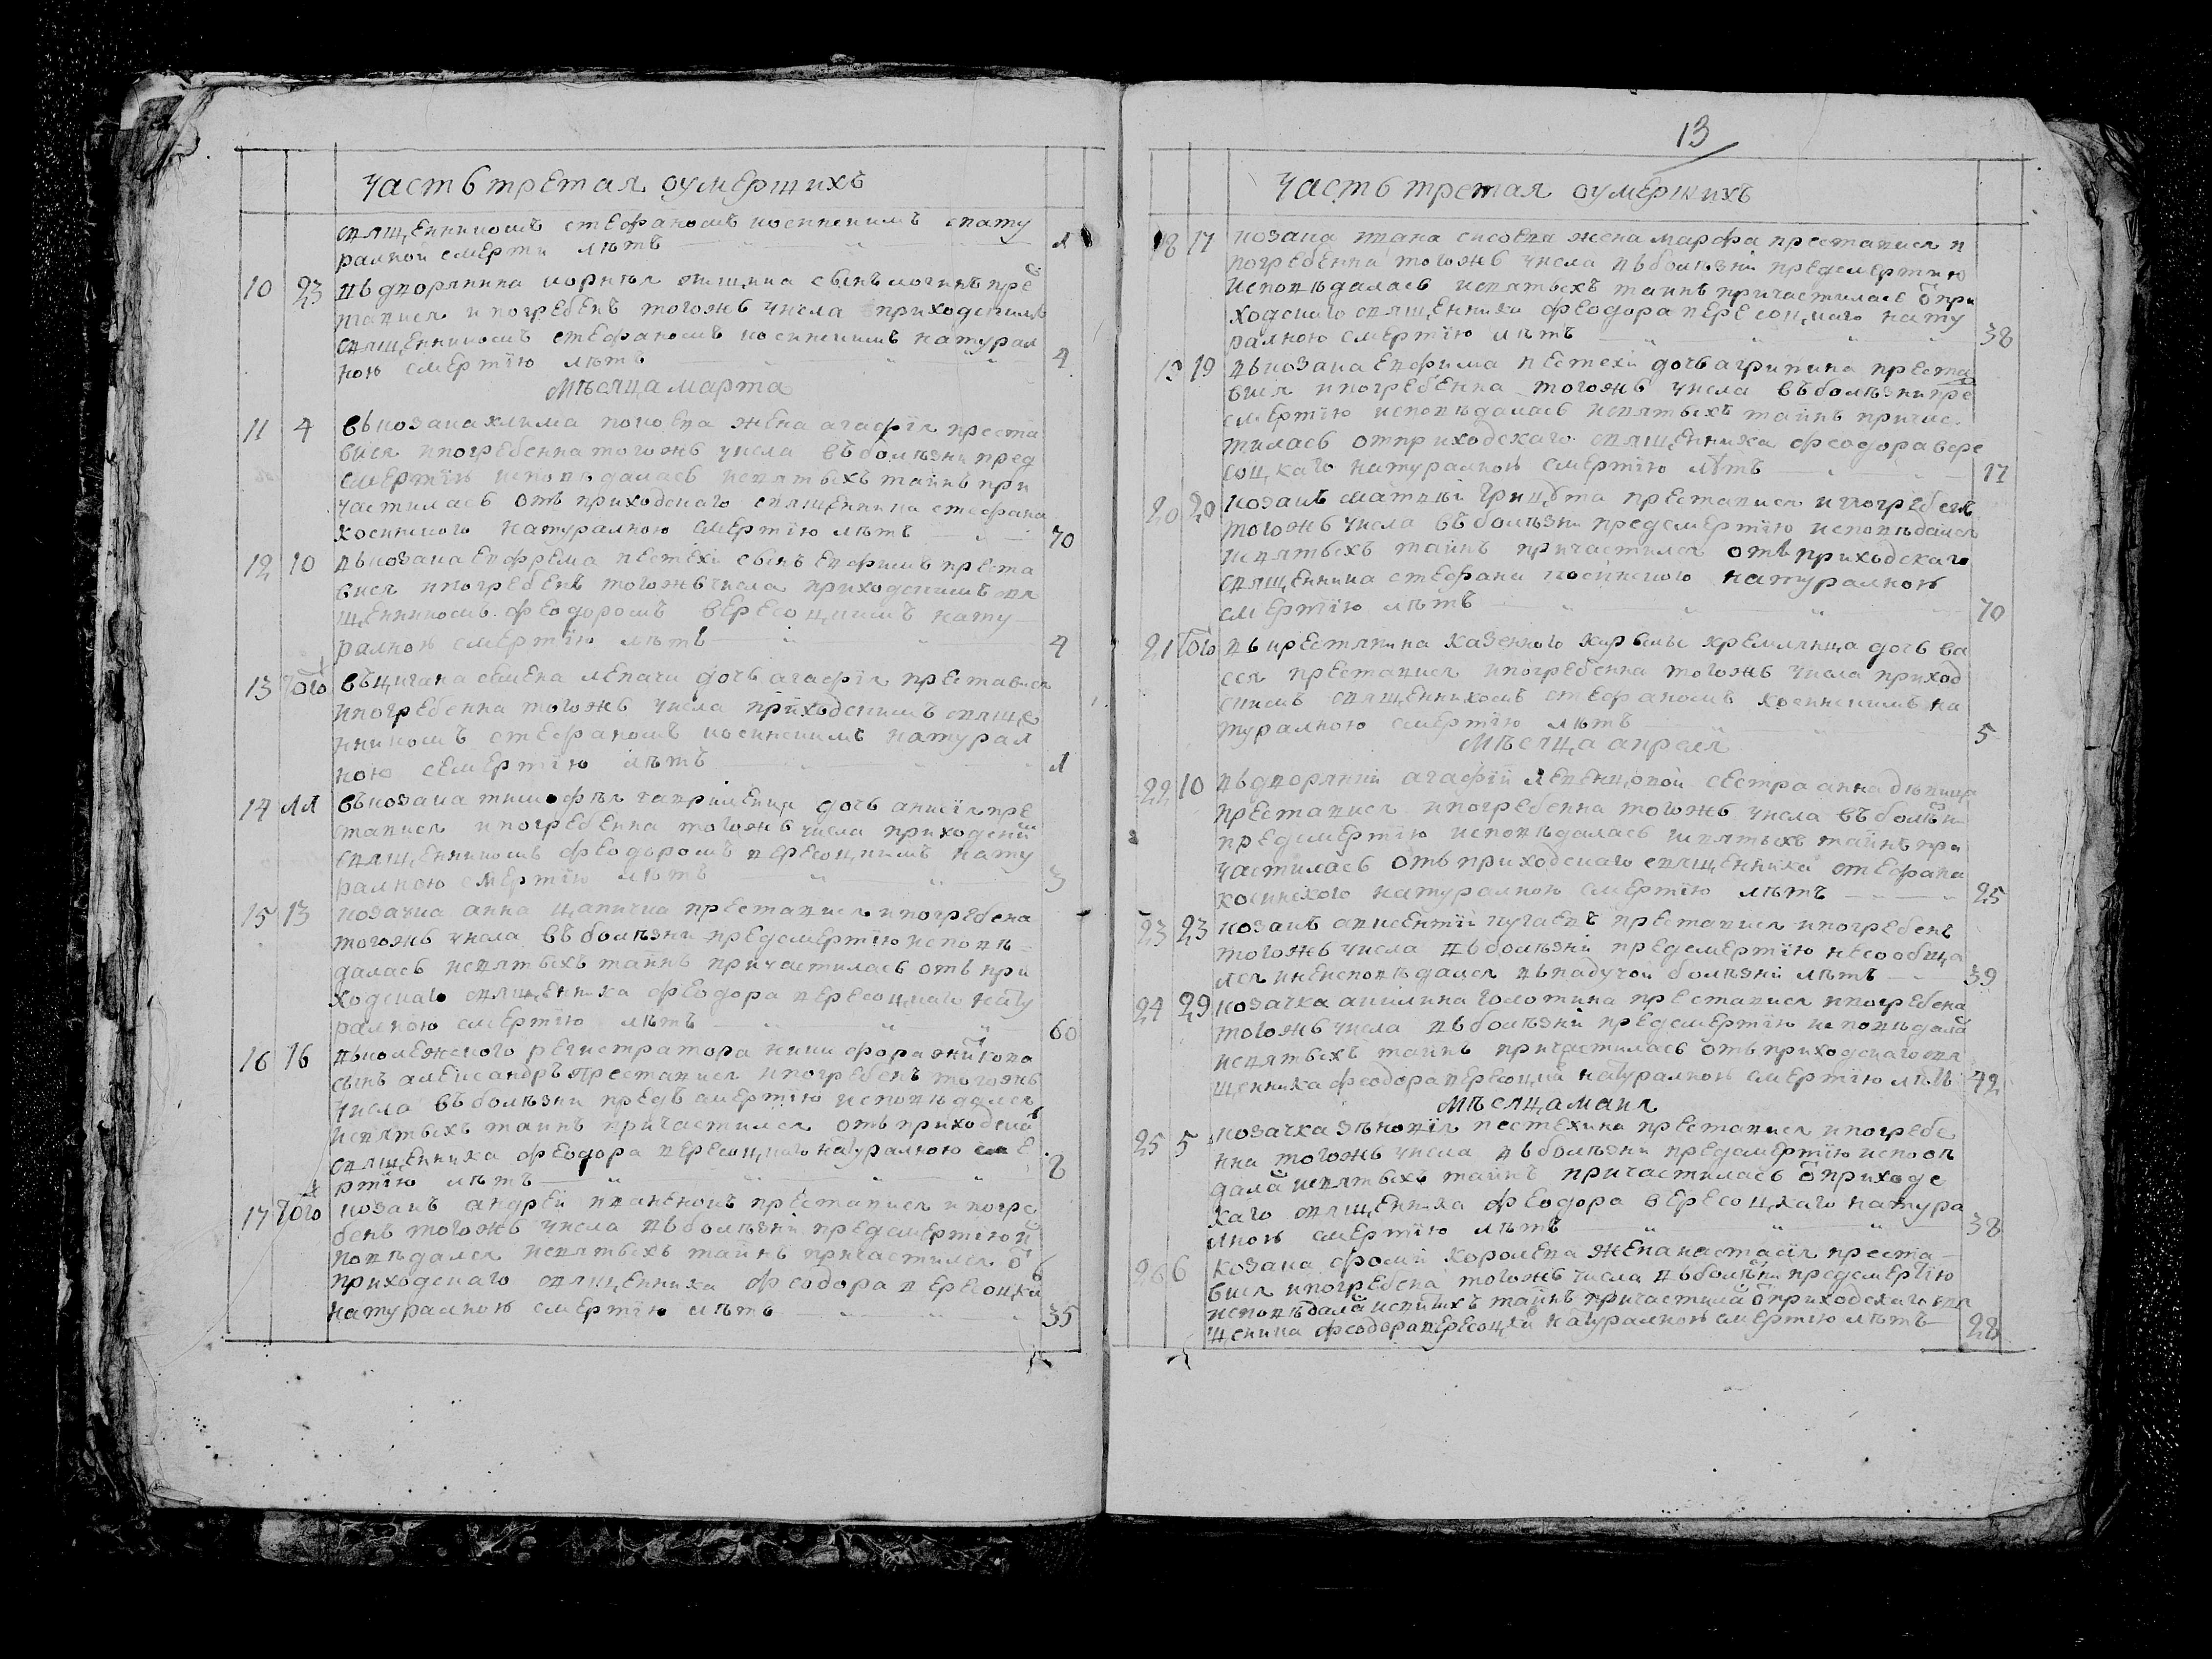 часть третая оумершихъ
священникомъ стефаномъ косинскимъ снату
ралной смерти лѣтъ 1
10 23 въ дворянина корнѣя сынъ логинъ пре
ставися и погребенъ тогожь числа приходскимъ
священникомъ стефаномъ косинскимъ натурал
ною смертїю лѣтъ 4
Мѣсяца марта
11 4 въ козака клима попова жена агафїя преста
вися ипогребенна тогожь числа въ болѣзни пред
смертїю исповѣдалась исвятыхъ таинъ при
частилась отъ приходскаго священника стефана
косинского натуралною смертїю лѣтъ 70
12 10 въ козака ефрема пестехи сынъ ефимъ преста
вися ипогребенъ тогожь числа приходскимъ свя
щенникомъ феодоромъ вересоцкимъ нату
ралною смертїю лѣтъ 4
13 Того въ цигана семена лепачи дочь агафїя преставися
ипогребенна тогожь числа приходскимъ свяще
нникомъ стефаномъ косинскимъ натурал
ною семертїю лѣтъ 1
14 11 въ козака тимофѣя гаврименка дочь анисїя пре
стависа ипогребенна тогожь числа приходским
священникомъ феодоромъ вересоцкимъ нату
ралною смертїю лѣтъ 3
15 13 козачка анна цапичка преставися ипогребена
тогожь числа въ болѣзни предсмертїю исповѣ
далась исвятыхъ таинъ причастилась отъ при
ходскаго священника феодора вересоцкаго нату
ралною смертїю лѣтъ 60
16 16 въ колежского регистратора никифора
сынъ александръ преставися ипогребенъ тогожь
числа въ болѣзни предъ смертїю исповѣдался
исвятыхъ таинъ причастился отъ приходска
священника феодора вересоцкаго натуралною сме
ртїю лѣтъ 8
17 Того козакъ андрей преставися ипогре
бенъ тогожь числа въ болѣзни предсмертїю и
повѣдался исвятыхъ таинъ причастился о
приходскаго священника феодора вересоцка
натуралною смертїю лѣтъ 35
13
часть третая оумершихъ
18 17 козака жена марфа преставися и
погребенна тогожь числа въ болѣзни предсмертїю
исповѣдалась исвятыхъ таинъ причастилась о при
ходскаго священника феодора вересоцкаго нату
ралною смертїю лѣтъ 38
19 19 въ козака ефима пестехи дочь агрипина преста
вися ипогребенна тогожь числа въ болѣзни пре
смертїю исповѣдалась исвятыхъ таинъ причас
тилась отприходскаго священника феодора вере
соцкаго натуралною смертїю лѣтъ 17
20 20 козакъ матвѣй грицюта преставися ипогребенъ
тогожь числа въ болѣзни предсмертїю исповѣдался
исвятыхъ таинъ причастился отъ приходскаго
священника стефана косинского натуралною
смертїю лѣтъ 70
21 Того въ крестянина казенного кирылы кремянца дочь ва
сся преставися ипогребенна тогожь числа приход
скимъ священникомъ стефаномъ косинскимъ на
туралною смертїю лѣтъ 5
Мѣсяца апреля
22 10 въ дворянкы агафїи сестра анна дѣвица
преставися ипогребенна тогожь числа въ болѣни
предсмертїю исповѣдалась исвятыхъ таинъ при
частилась отъ приходскаго священника стефана
косинского натуралною смертїю лѣтъ 25
23 23 козакъ авксентїй пугачъ преставися ипогребенъ
тогожь числа въ болѣзни предсмертїю несообща
лся инеисповѣдался въ падучой болѣзни лѣтъ 39
24 29 козачка акилина голотина преставися ипогребена
тогожь числа въ болѣзни предсмертїю исповѣдала
исвятыхъ таинъ причастилась отъ приходскаго свя
щенника феодора вересоцка натуралною смертїю лѣтъ 42
мѣсяца маия
25 5 козачка зѣновїя пестехина преставися ипогребе
нна тогожь числа въ болѣзни предсмертїю исповѣ
дала исвятыхъ таинъ причастилась о приходс
каго священника феодора вересоцкаго натура
лною смертїю лѣтъ 38
26 6 козака фомы королева жена настасїя преста
вися ипогребена тогожь числа въ болѣни предсмертїю
исповѣдала исвятыхъ таинъ причастила о приходскаго свя
щеника феодора вересоцка натуралною смертїю лѣтъ 28